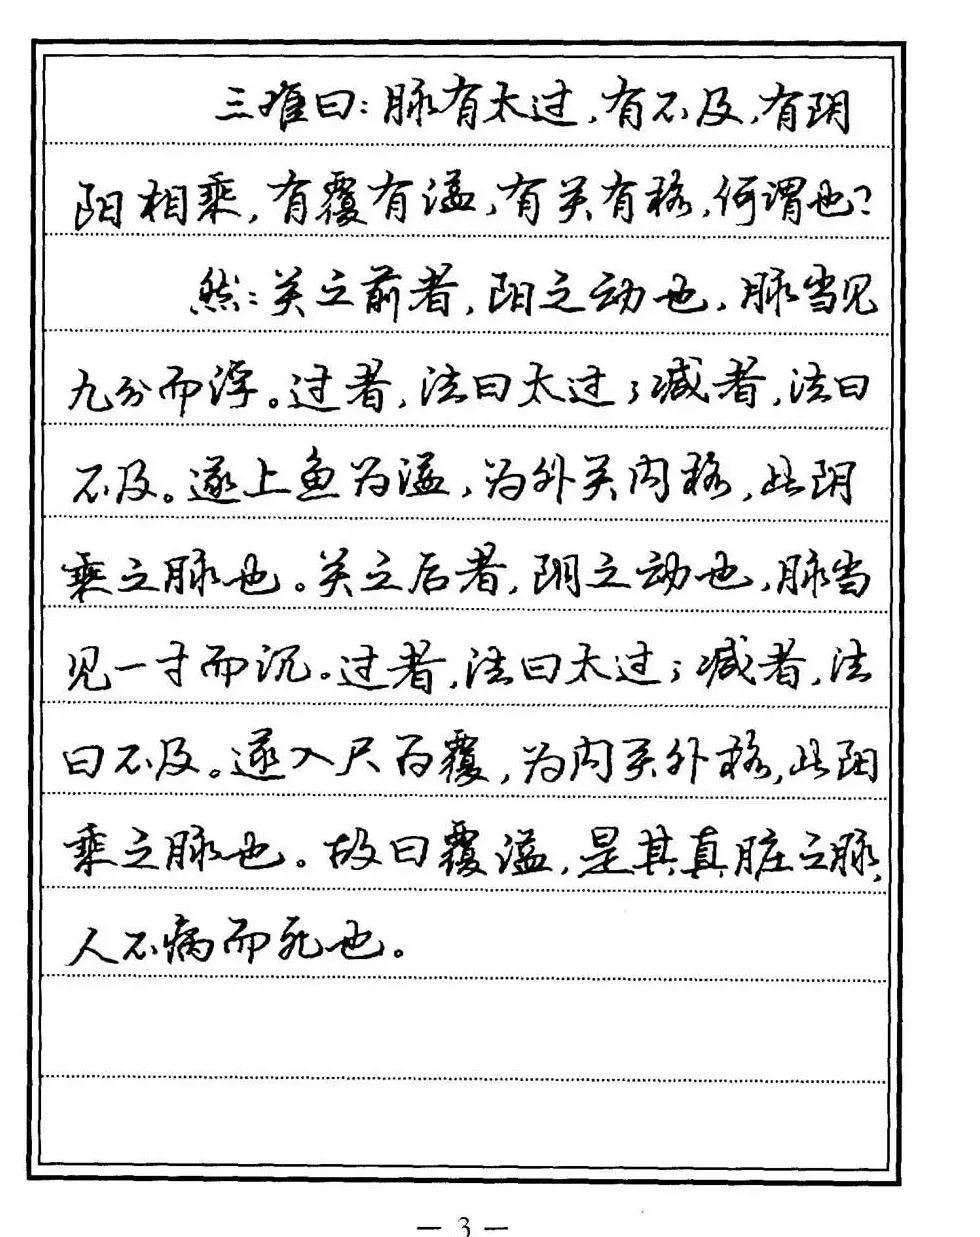 三难曰：脉有太过，有不及，有阴
阳相乘，有覆有溢，有关有格，何谓也？
然：关之前者，阳之动也，脉当见
九分而浮。过者，法曰太过；减者，法曰
不及。遂上鱼为溢，为外关内格，此阴
乘之脉也。关之后者，阴之动也，脉当
见一寸而沉。过者，法曰太过；减者，法
曰不及。遂入尺为覆，为内关外格，此阳
乘之脉也。故曰覆溢，是其真脏之脉，
人不病而死也。
— 3 —